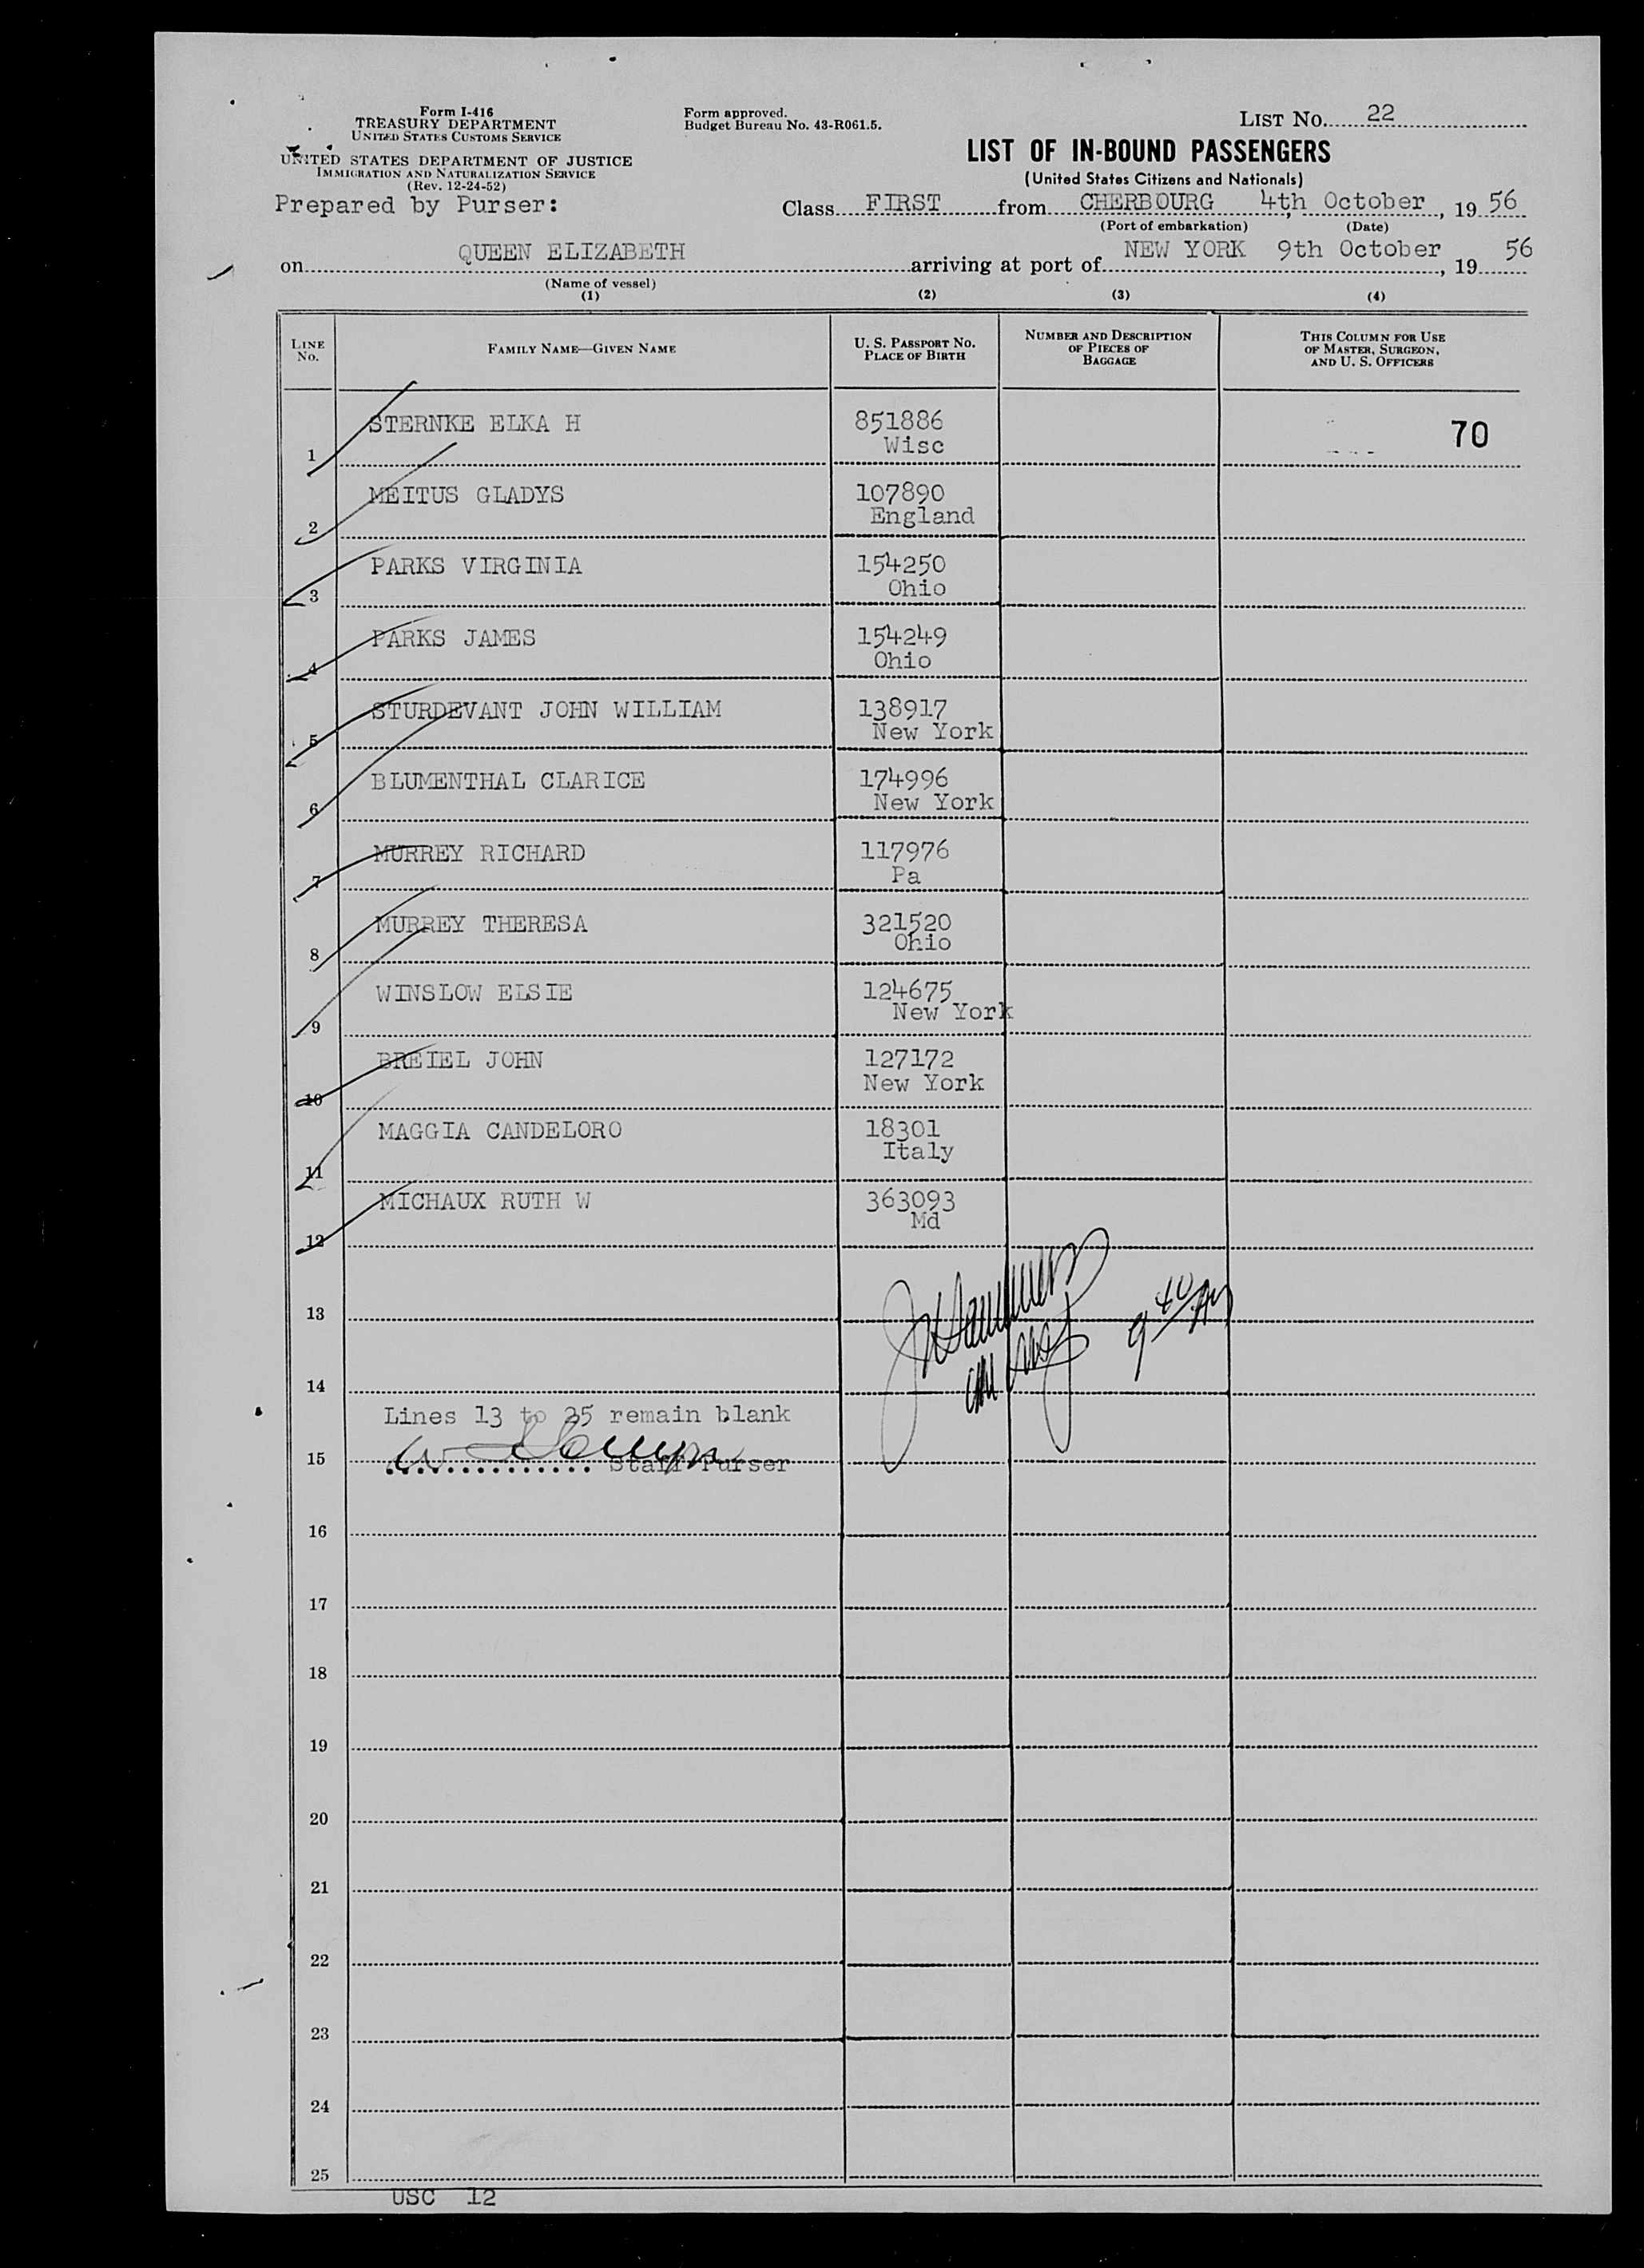 Form I-416
TREASURY DEPARTMENT
UNITED STATES CUSTOMS SERVICE
UNITED STATES DEPARTMENT OF JUSTICE
IMMIGRATION AND NATURALIZATION SERVICE
(Rev. 12-24-52)
Form approved.
Budget Bureau No. 43-R061.5.
LIST No. 22
LIST OF IN-BOUND PASSENGERS
(United States Citizens and Nationals)
Prepared by Purser:
Class FIRST from CHERBOURG 4th October, 19 56
(Port of embarkation) (Date)
on QUEEN ELIZABETH arriving at port of NEW YORK 9th October, 19 56
(Name of vessel)
(1) (2) (3) (4)
LINE No.
FAMILY NAME—GIVEN NAME
U. S. PASSPORT No.
PLACE OF BIRTH
NUMBER AND DESCRIPTION
OF PIECES OF
BAGGAGE
THIS COLUMN FOR USE
OF MASTER, SURGEON,
AND U. S. OFFICERS
STERNKE ELKA H 851886
1 Wisc 70
MEITUS GLADYS 107890
2 England
PARKS VIRGINIA 154250
3 Ohio
PARKS JAMES 154249
4 Ohio
STURDEVANT JOHN WILLIAM 138917
5 New York
BLUMENTHAL CLARICE 174996
6 New York
MURREY RICHARD 117976
7 Pa
MURREY THERESA 321520
8 Ohio
WINSLOW ELSIE 124675
9 New York
BREIEL JOHN 127172
10 New York
MAGGIA CANDELORO 18301
11 Italy
MICHAUX RUTH W 363093
12 Md
13
9 40/AM
14
Lines 13 to 25 remain blank
15 Staff Purser
16
17
18
19
20
21
22
23
24
25
USC 12